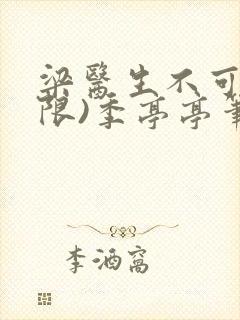 梁醫生不可
限)季亭亭筆
李酒窩